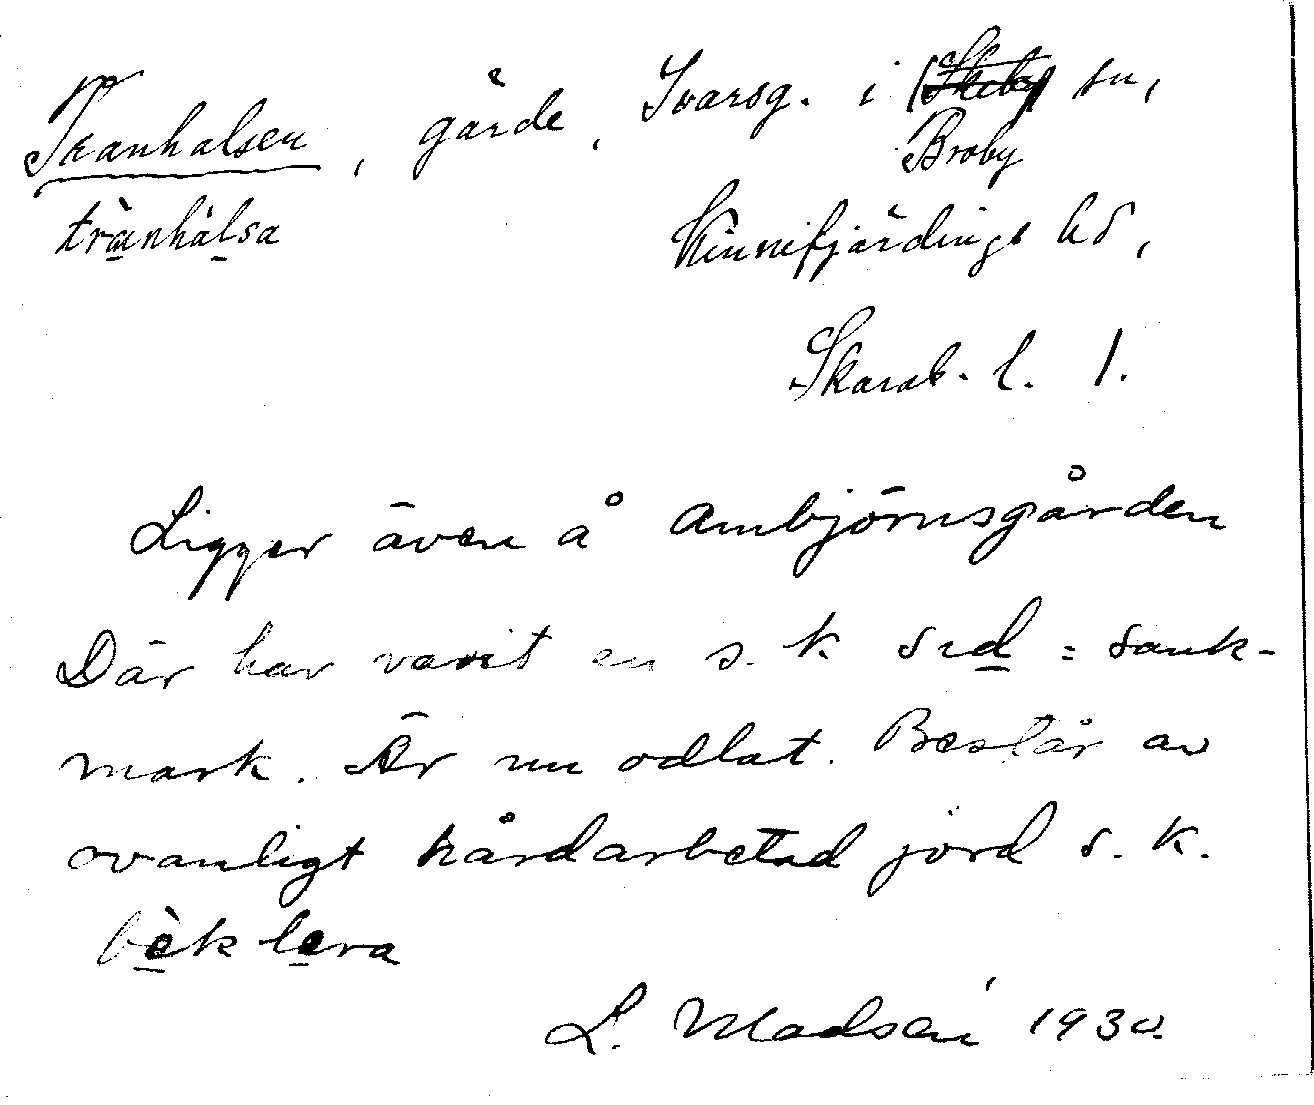 Tranhalsen, gärde, Ivarsg. i (Skeby) sn,
Broby
trànhàlsa Kinnefjärdings hd,
Skarab. l. 1.
Ligger även å Ambjörnsgården
Där har varit en s.k. sid = sank-
mark. Är nu odlat. Består av
ovanligt hårdarbetad jord s.k.
bèk lera
L. Madsén 1930.